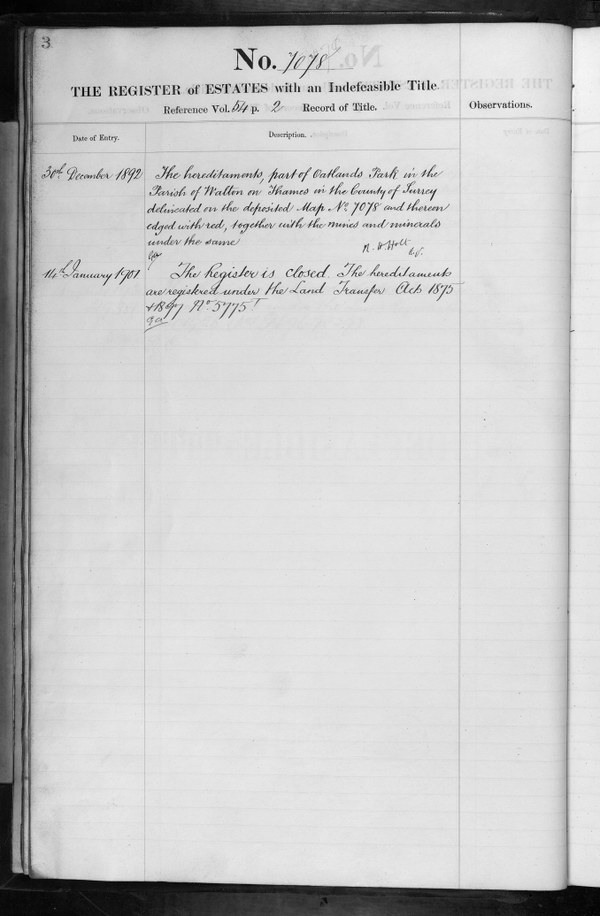 3
No. 7078
THE REGISTER of ESTATES with an Indefeasible Title.
Reference Vol. 54 p. 2 Record of Title.
Observations.
Date of Entry.
Description.
30th December 1892
The hereditaments, part of Oatlands Park in the
Parish of Walton on Thames in the County of Surrey
delineated on the deposited Map No 7078 and thereon
edged with red, together with the mines and minerals
under the same
R. H. Holt
14th January 1901
The Register is closed. The hereditaments
are registered under the Land Transfer Acts 1875
& 1897 No 5775